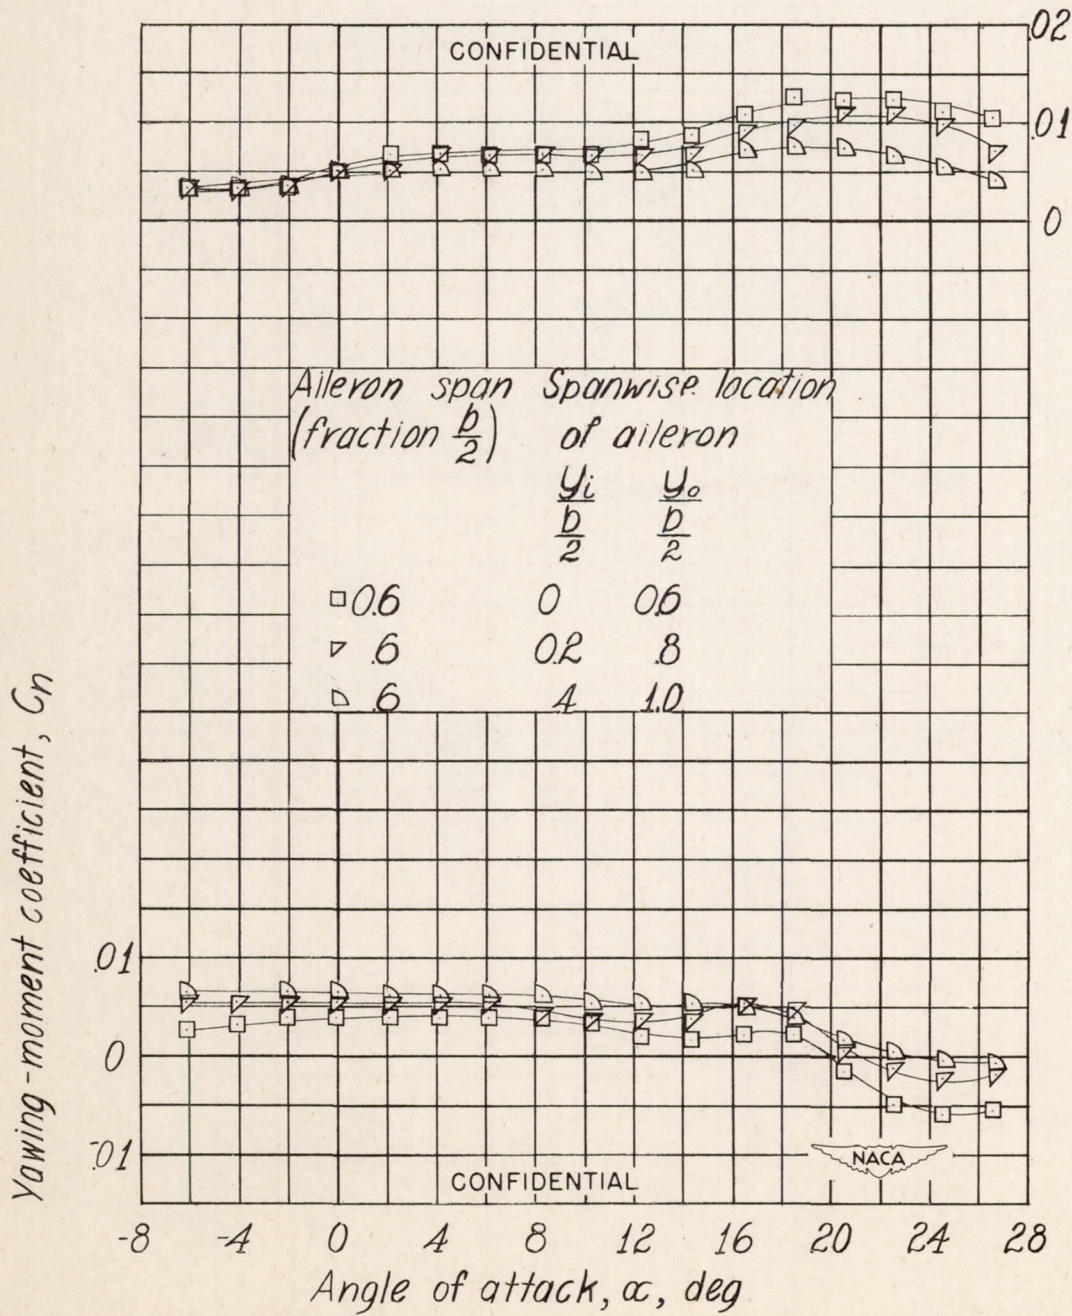 CONFIDENTIAL
.02
.01
0
Aileron span Spanwise location
(fraction b/2) of aileron
yi/b/2 yo/b/2
0.6 0 0.6
.6 0.2 .8
.6 .4 1.0
Yawing-moment coefficient, Cn
.01
0
-.01
NACA
CONFIDENTIAL
-8 -4 0 4 8 12 16 20 24 28
Angle of attack, α, deg